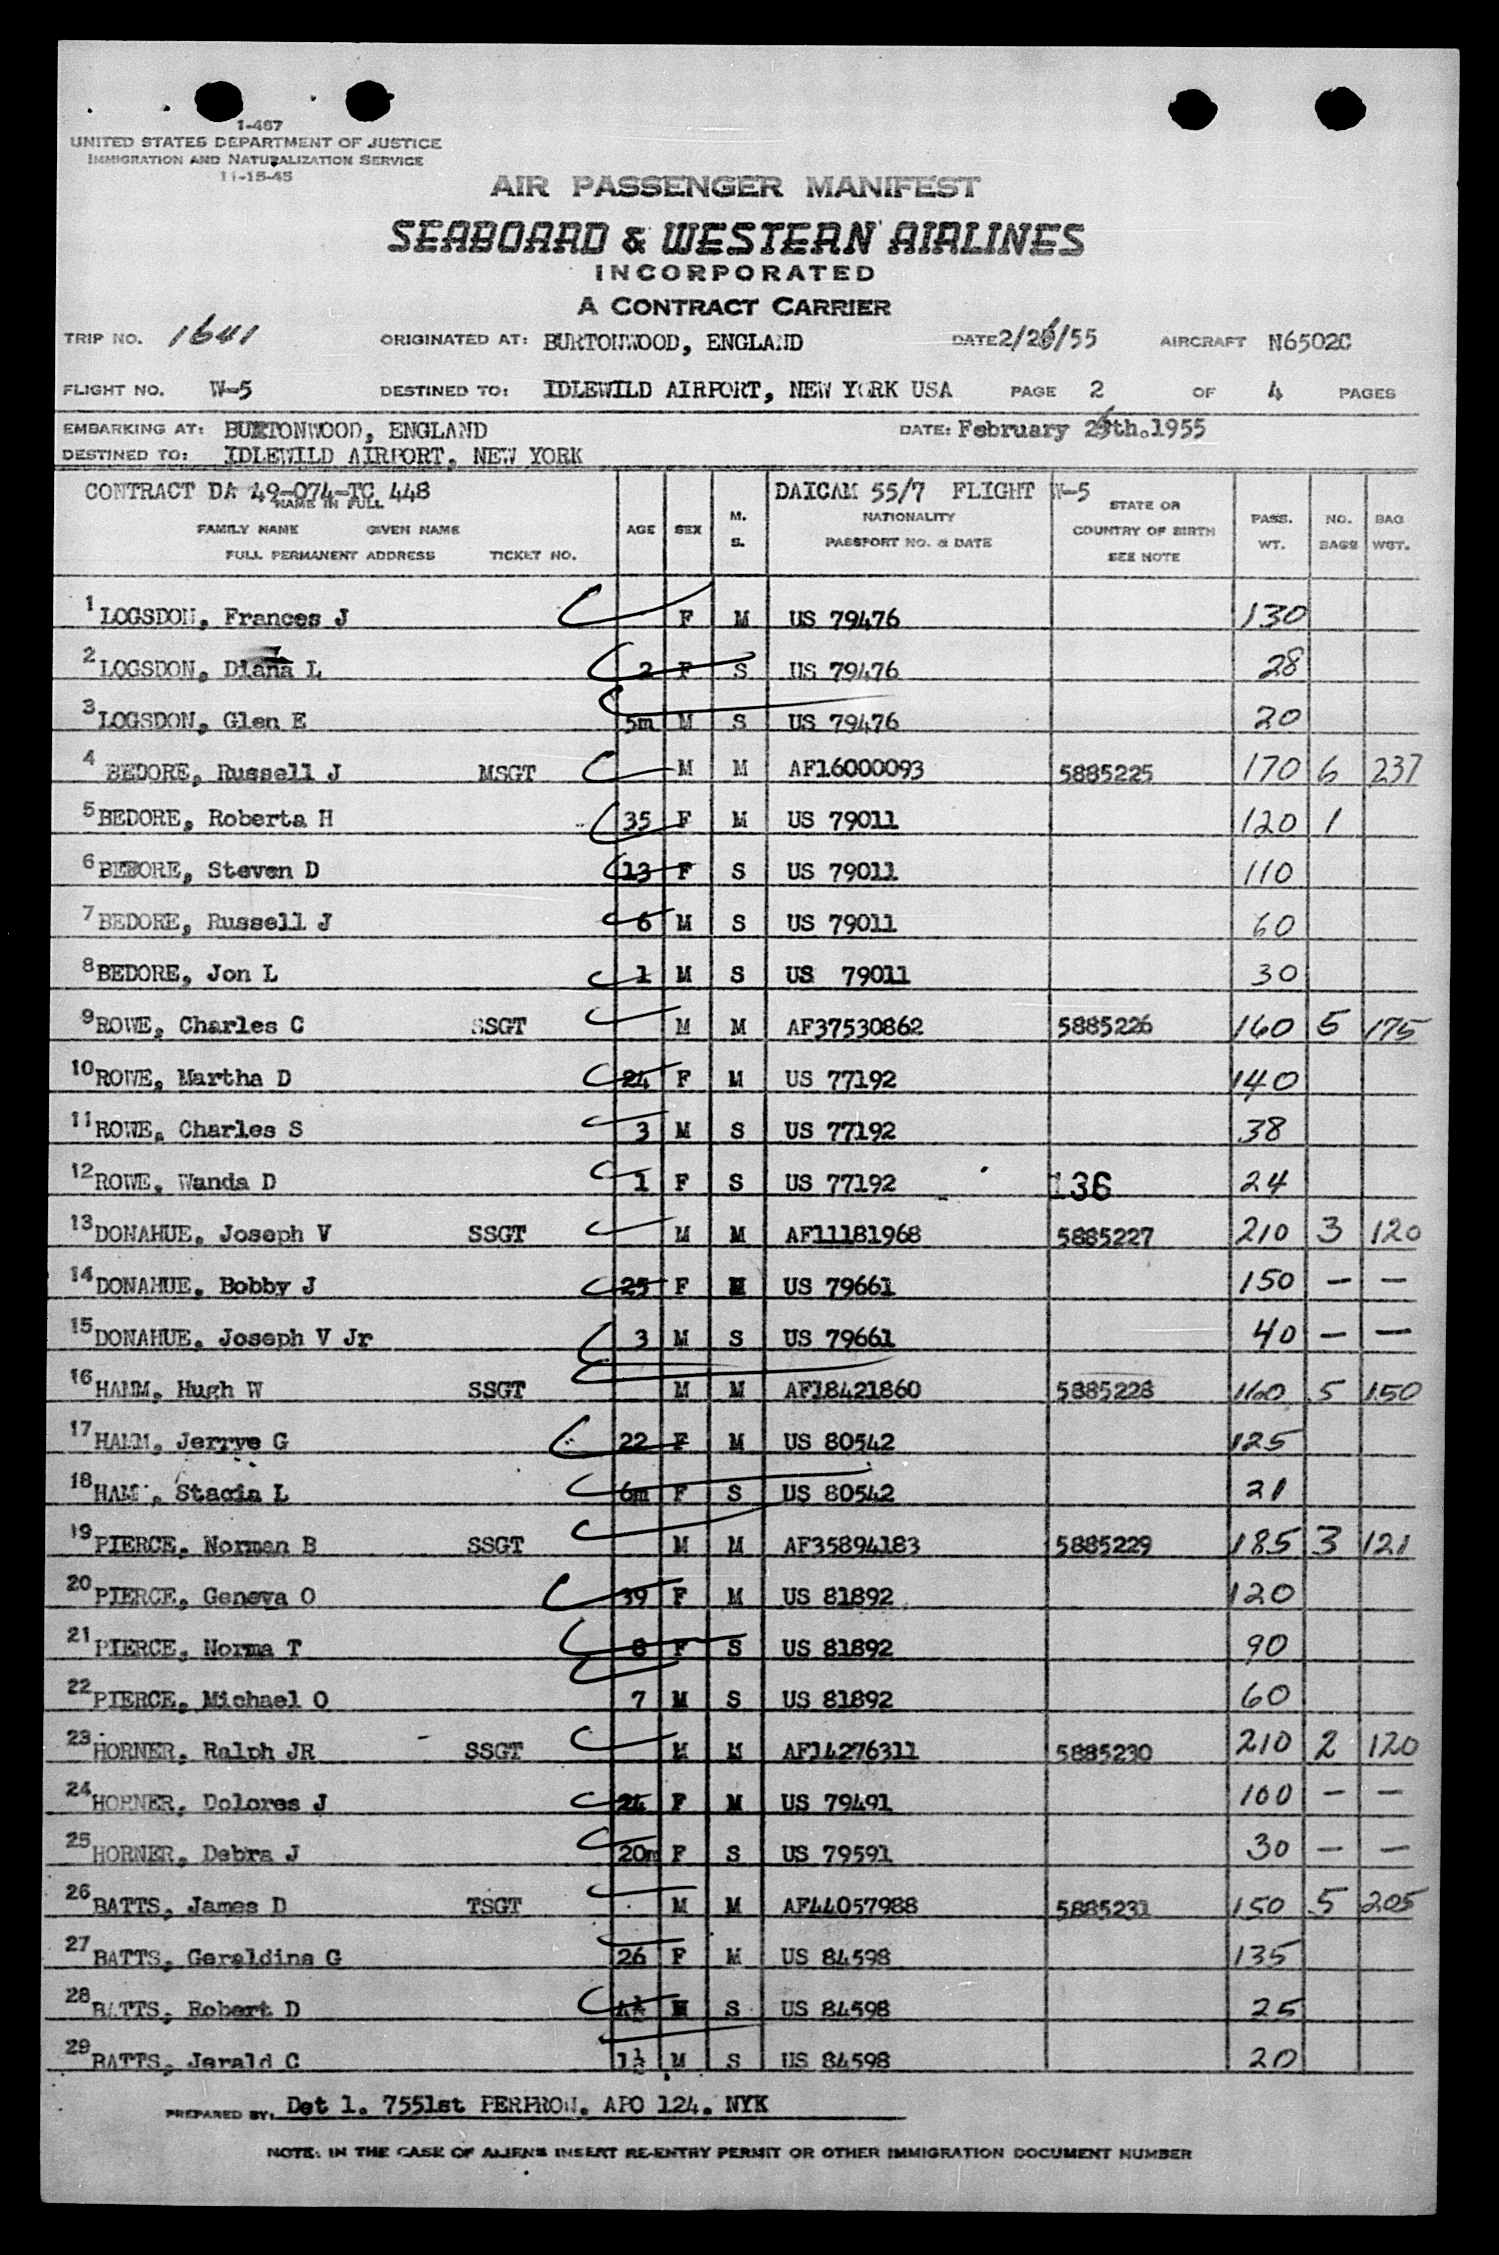 1-467
UNITED STATES DEPARTMENT OF JUSTICE
IMMIGRATION AND NATURALIZATION SERVICE
11-15-45
AIR PASSENGER MANIFEST
SEABOARD & WESTERN AIRLINES
INCORPORATED
A CONTRACT CARRIER
TRIP NO. 1641 ORIGINATED AT: BURTONWOOD, ENGLAND DATE 2/26/55 AIRCRAFT N6502C
FLIGHT NO. W-5 DESTINED TO: IDLEWILD AIRPORT, NEW YORK USA PAGE 2 OF 4 PAGES
EMBARKING AT: BURTONWOOD, ENGLAND DATE: February 26th.1955
DESTINED TO: IDLEWILD AIRPORT, NEW YORK
CONTRACT DA 49-074-TC 448 DAICAM 55/7 FLIGHT W-5
NAME IN FULL
FAMILY NAME GIVEN NAME
FULL PERMANENT ADDRESS TICKET NO.
AGE SEX M. S. NATIONALITY PASSPORT NO. & DATE STATE OR COUNTRY OF BIRTH SEE NOTE PASS. WT. NO. BAGS BAG WGT.
1 LOGSDON, Frances J F M US 79476 130
2 LOGSDON, Diana L 2 F S US 79476 28
3 LOGSDON, Glen E 5m M S US 79476 20
4 BEDORE, Russell J MSGT M M AF16000093 5885225 170 6 237
5 BEDORE, Roberta H 35 F M US 79011 120 1
6 BEDORE, Steven D 13 F S US 79011 110
7 BEDORE, Russell J 6 M S US 79011 60
8 BEDORE, Jon L 1 M S US 79011 30
9 ROWE, Charles C SSGT M M AF37530862 5885226 160 5 175
10 ROWE, Martha D 24 F M US 77192 140
11 ROWE, Charles S 3 M S US 77192 38
12 ROWE, Wanda D 1 F S US 77192 136 24
13 DONAHUE, Joseph V SSGT M M AF11181968 5885227 210 3 120
14 DONAHUE, Bobby J 25 F M US 79661 150 — —
15 DONAHUE, Joseph V Jr 3 M S US 79661 40 — —
16 HAMM, Hugh W SSGT M M AF18421860 5885228 160 5 150
17 HAMM, Jerrye G 22 F M US 80542 125
18 HAM , Stacia L 6m F S US 80542 21
19 PIERCE, Norman B SSGT M M AF35894183 5885229 185 3 121
20 PIERCE, Geneva O 39 F M US 81892 120
21 PIERCE, Norma T 8 F S US 81892 90
22 PIERCE, Michael O 7 M S US 81892 60
23 HORNER, Ralph JR SSGT M M AF14276311 5885230 210 2 120
24 HORNER, Dolores J 24 F M US 79491 100 — —
25 HORNER, Debra J 20m F S US 79591 30 — —
26 BATTS, James D TSGT M M AF44057988 5885231 150 5 205
27 BATTS, Geraldine G 26 F M US 84598 135
28 BATTS, Robert D M S US 84598 25
29 BATTS, Jerald C 1½ M S US 84598 20
PREPARED BY: Det 1. 7551st PERPRON. APO 124. NYK
NOTE: IN THE CASE OF ALIENS INSERT RE-ENTRY PERMIT OR OTHER IMMIGRATION DOCUMENT NUMBER